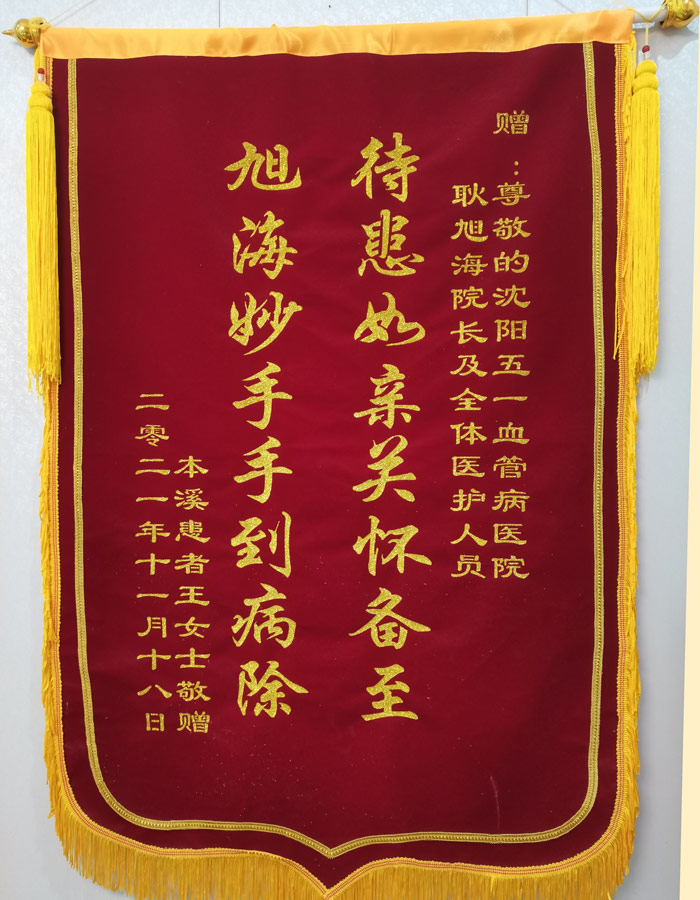 赠：尊敬的沈阳五一血管病医院
耿旭海院长及全体医护人员
待患如亲关怀备至
旭海妙手手到病除
本溪患者王女士敬赠
二零二一年十一月十八日